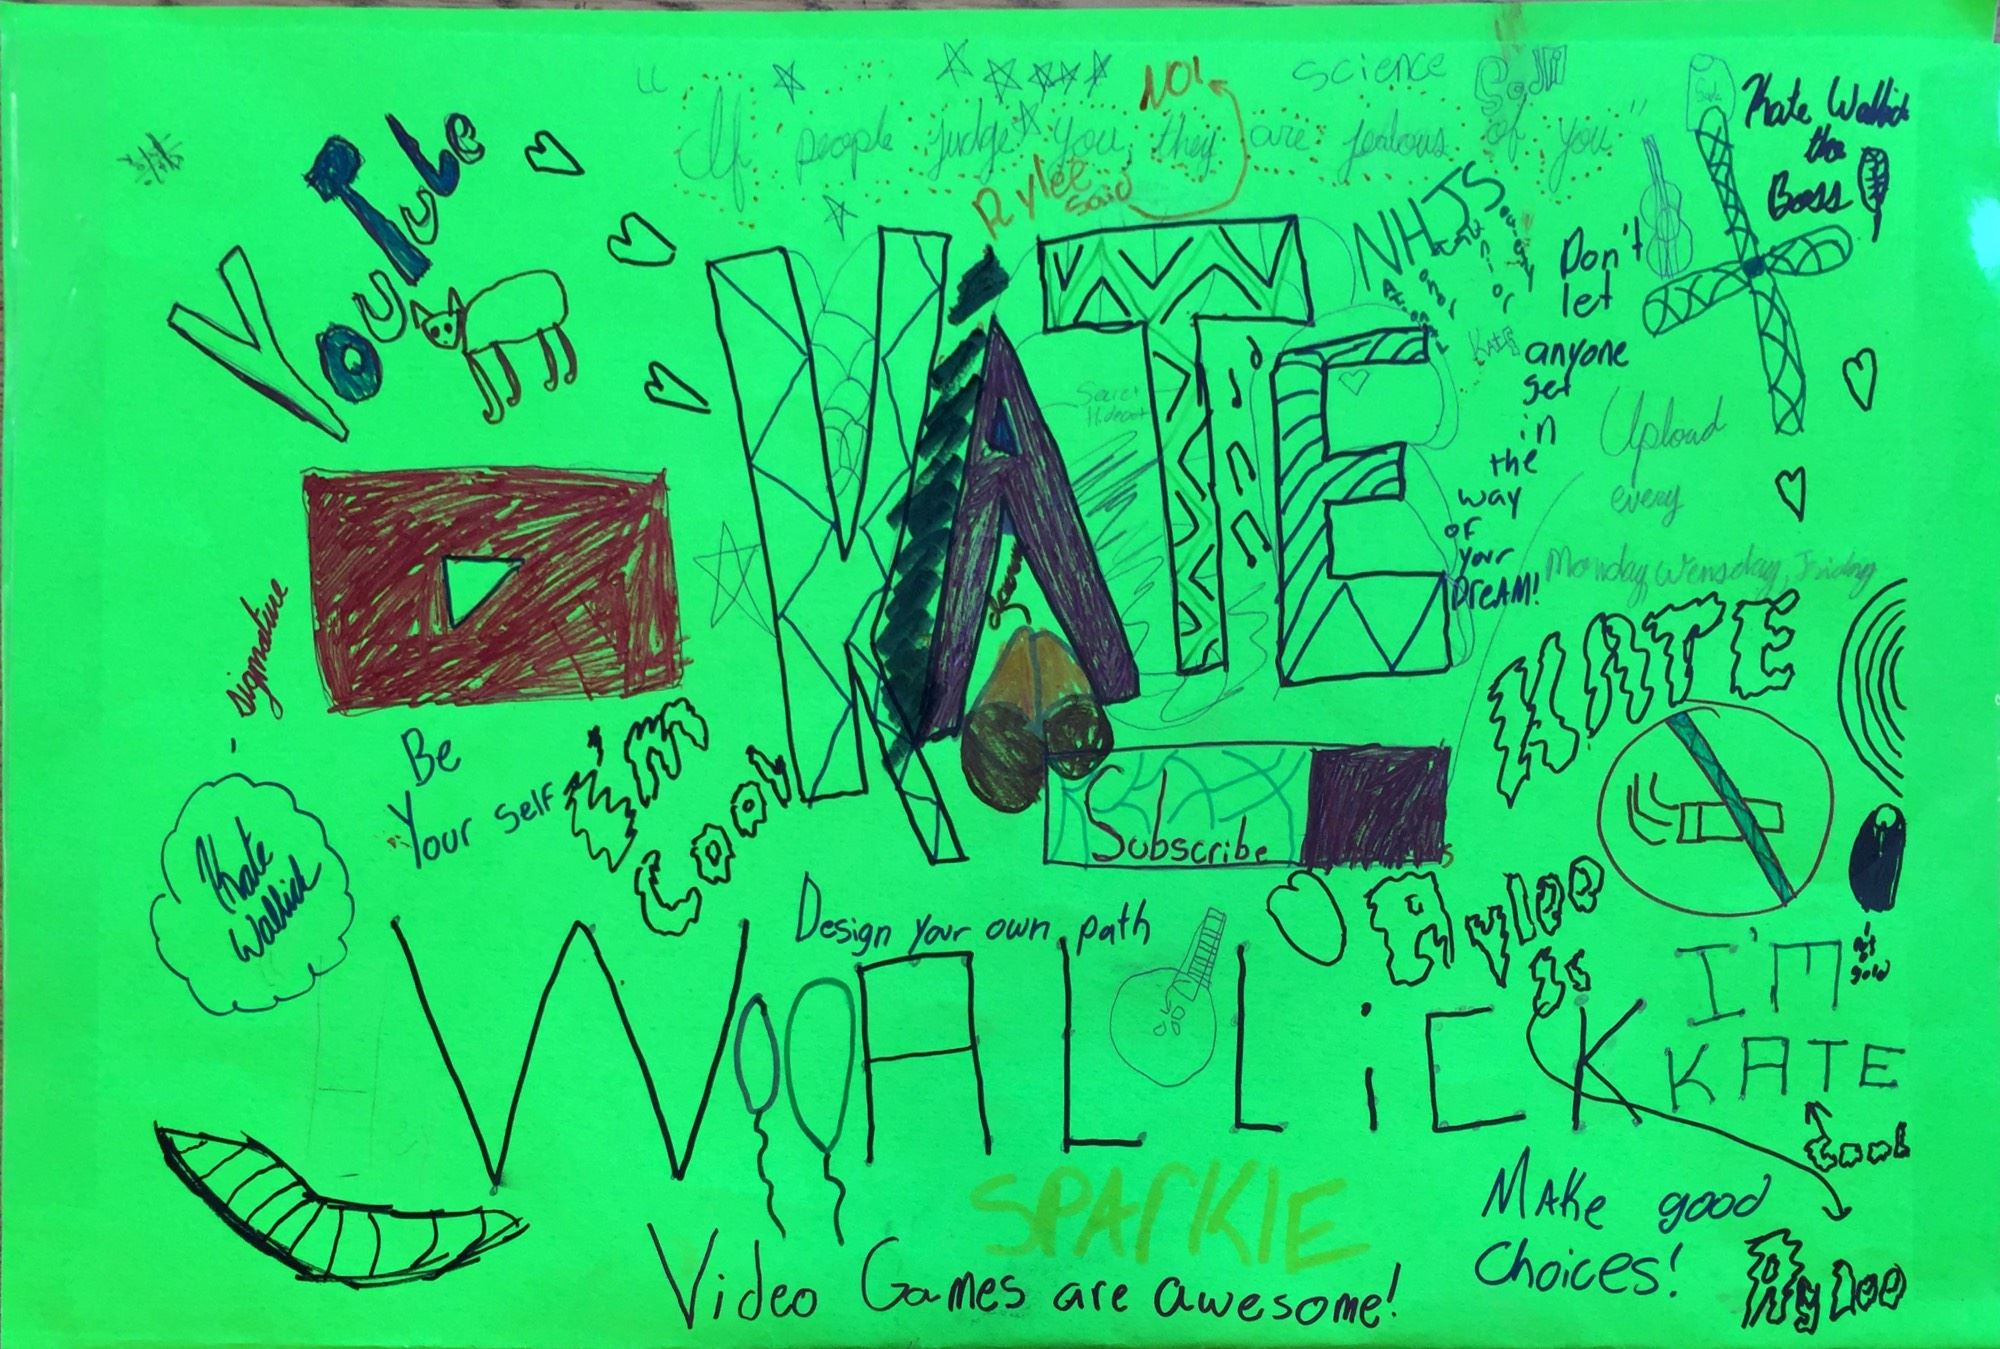 YouTube
science
Soda
"If people judge you, they are jealous of you"
NO!
Rylee said
Kate Wallick
the
Boss
NHJS
KATE
Secret
Hideout
Don't
let
anyone
get
in
the
way
of
your
DreAM!
Upload
every
Monday, Wensday, Friday
KATE
signature
Kate
Wallick
Be
Your self
I'm
COOL
Subscribe
Design your own path
Rylee
is
WALLiCK
I'M
KATE
cool
SPArKlE
MAKe good
choices!
Rylee
Video Games are awesome!